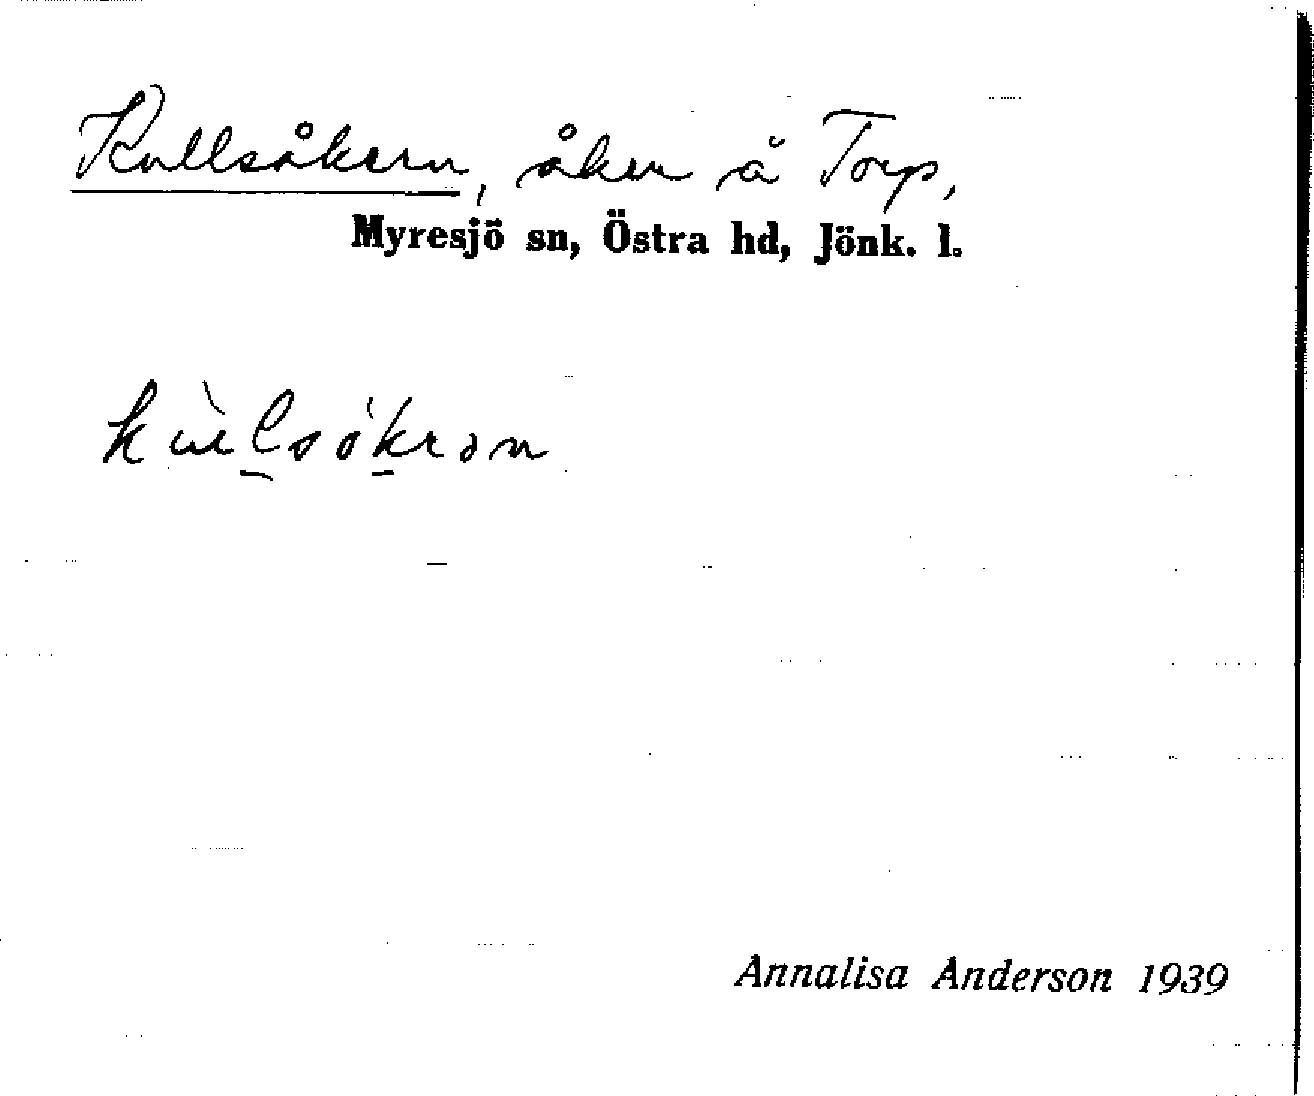 Kullsåkern, åker å Torp,
Myresjö sn, Östra hd, Jönk. l.
Annalisa Anderson 1939